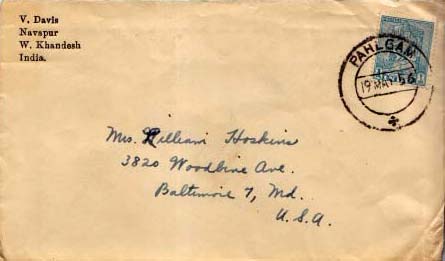 V. Davis
Navapur
W. Khandesh
India.
PAHLGAM
19 MAY 56
Mrs. William Hoskins
3820 Woodbine Ave.
Baltimore 7, Md.
U.S.A.